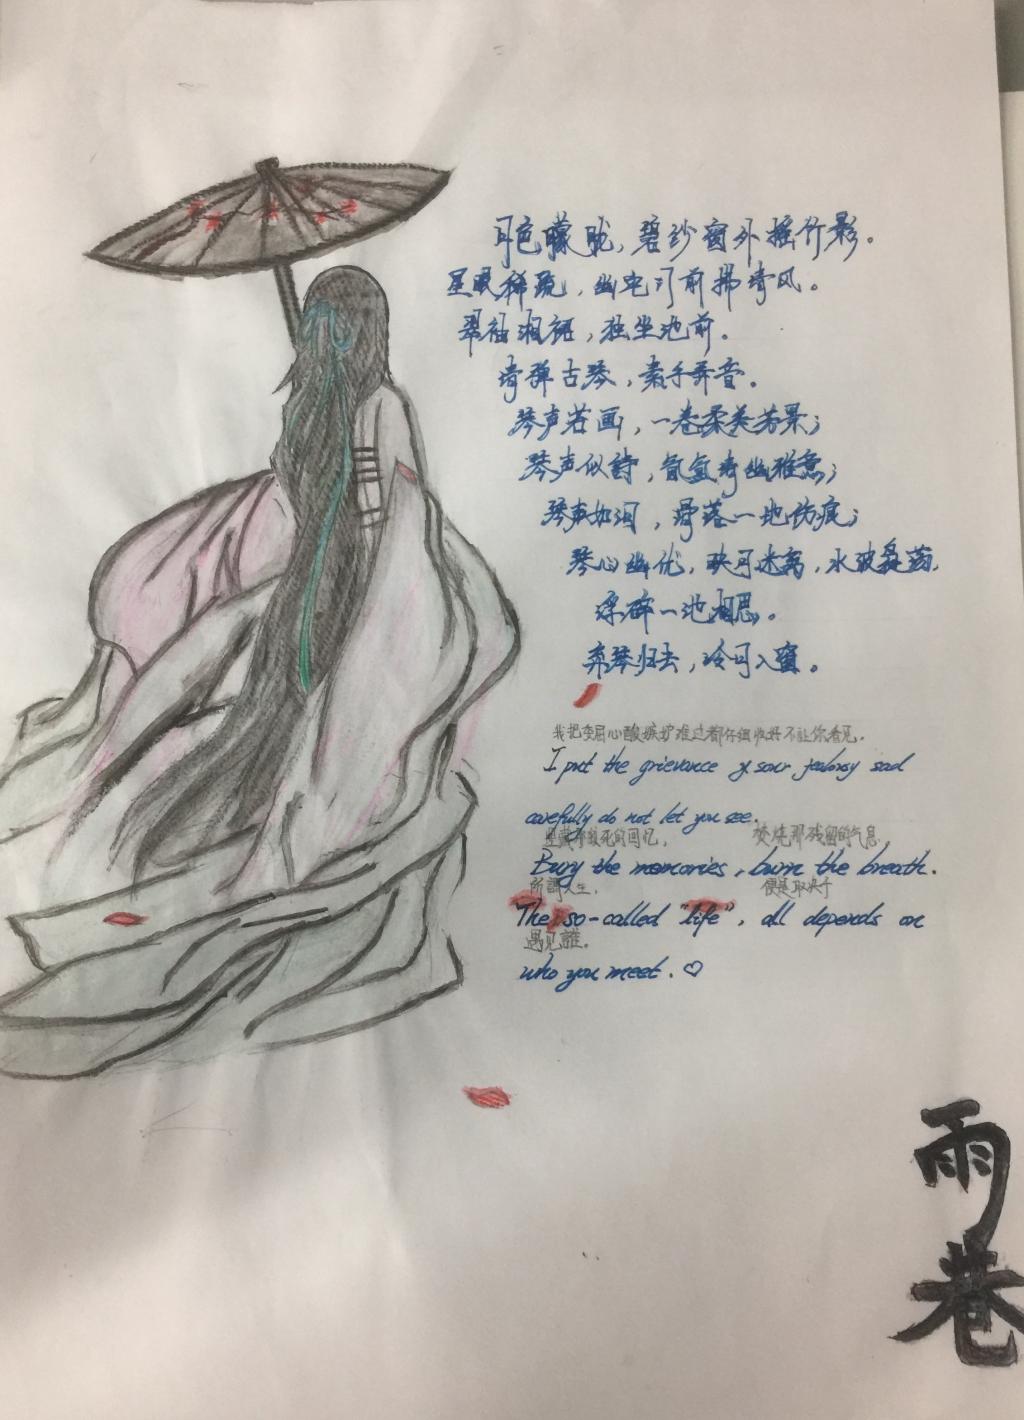 月色朦胧，碧纱窗外摇竹影。
星眼稀疏，幽宅门前拂清风。
翠袖湘裙，独坐池前。
清弹古琴，素手弄音。
琴声若画，一卷柔美芳景；
琴声似詩，氤氲清幽雅意；
琴声如泪，滑落一地伤痕；
琴心幽优，映月迷离，水波叠荡，
揉碎一池相思。
弃琴归去，冷月入窗。
我把委屈心酸嫉妒难过都仔细收好不让你看见.
I put the grievance sour jealousy sad
carefully do not let you see.
埋藏那致死的回忆, 焚烧那残留的气息.
Bury the memories, burn the breath.
所謂人生, 便是取决于
The so-called "life", all depends on
遇见誰。
who you meet. ♡
雨
巷